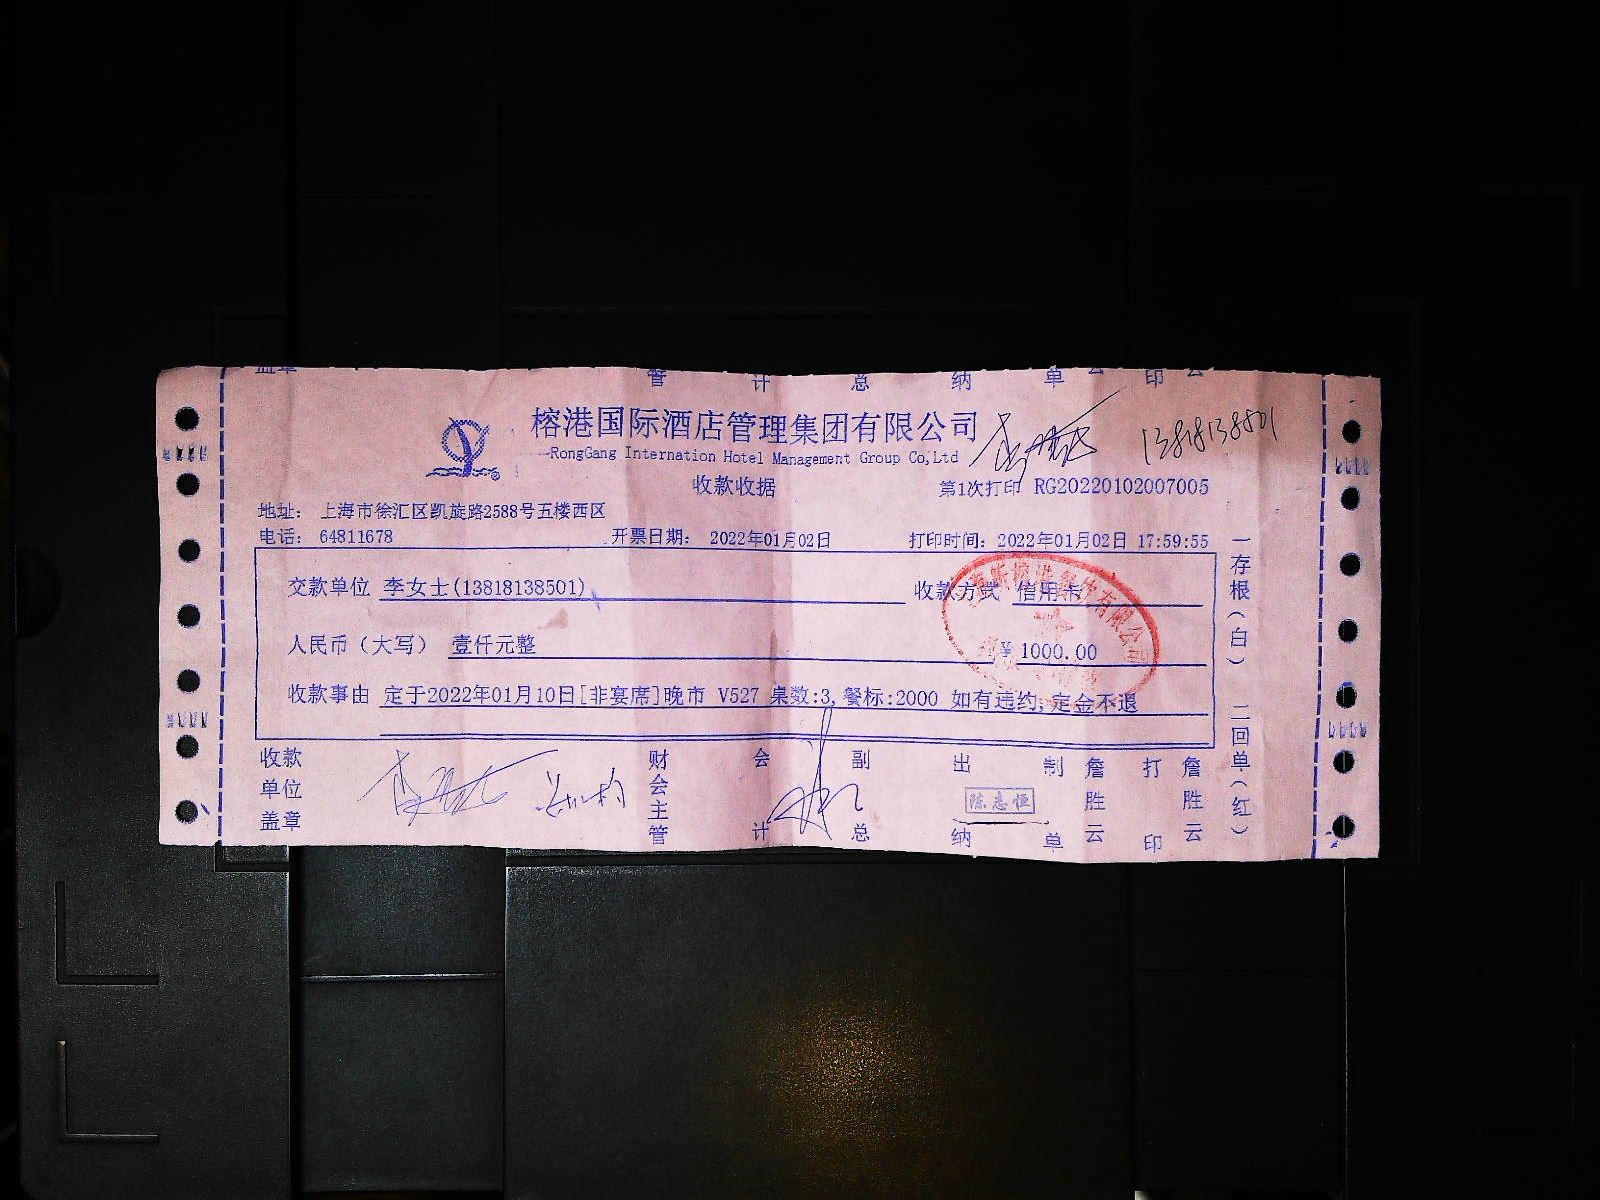 盖章
管 计 总 纳 单 云 印 云
榕港国际酒店管理集团有限公司
RongGang Internation Hotel Management Group Co,Ltd
13818138801
收款收据
第1次打印 RG20220102007005
地址: 上海市徐汇区凯旋路2588号五楼西区
电话: 64811678
开票日期: 2022年01月02日
打印时间: 2022年01月02日 17:59:55
交款单位 李女士(13818138501)
收款方式 信用卡
人民币(大写) 壹仟元整
¥ 1000.00
收款事由 定于2022年01月10日[非宴席]晚市 V527 桌数:3,餐标:2000 如有违约,定金不退
收款单位盖章
财会主管
会计
副总
出纳
陈志恒
制单
詹胜云
打印
詹胜云
一存根(白) 二回单(红)